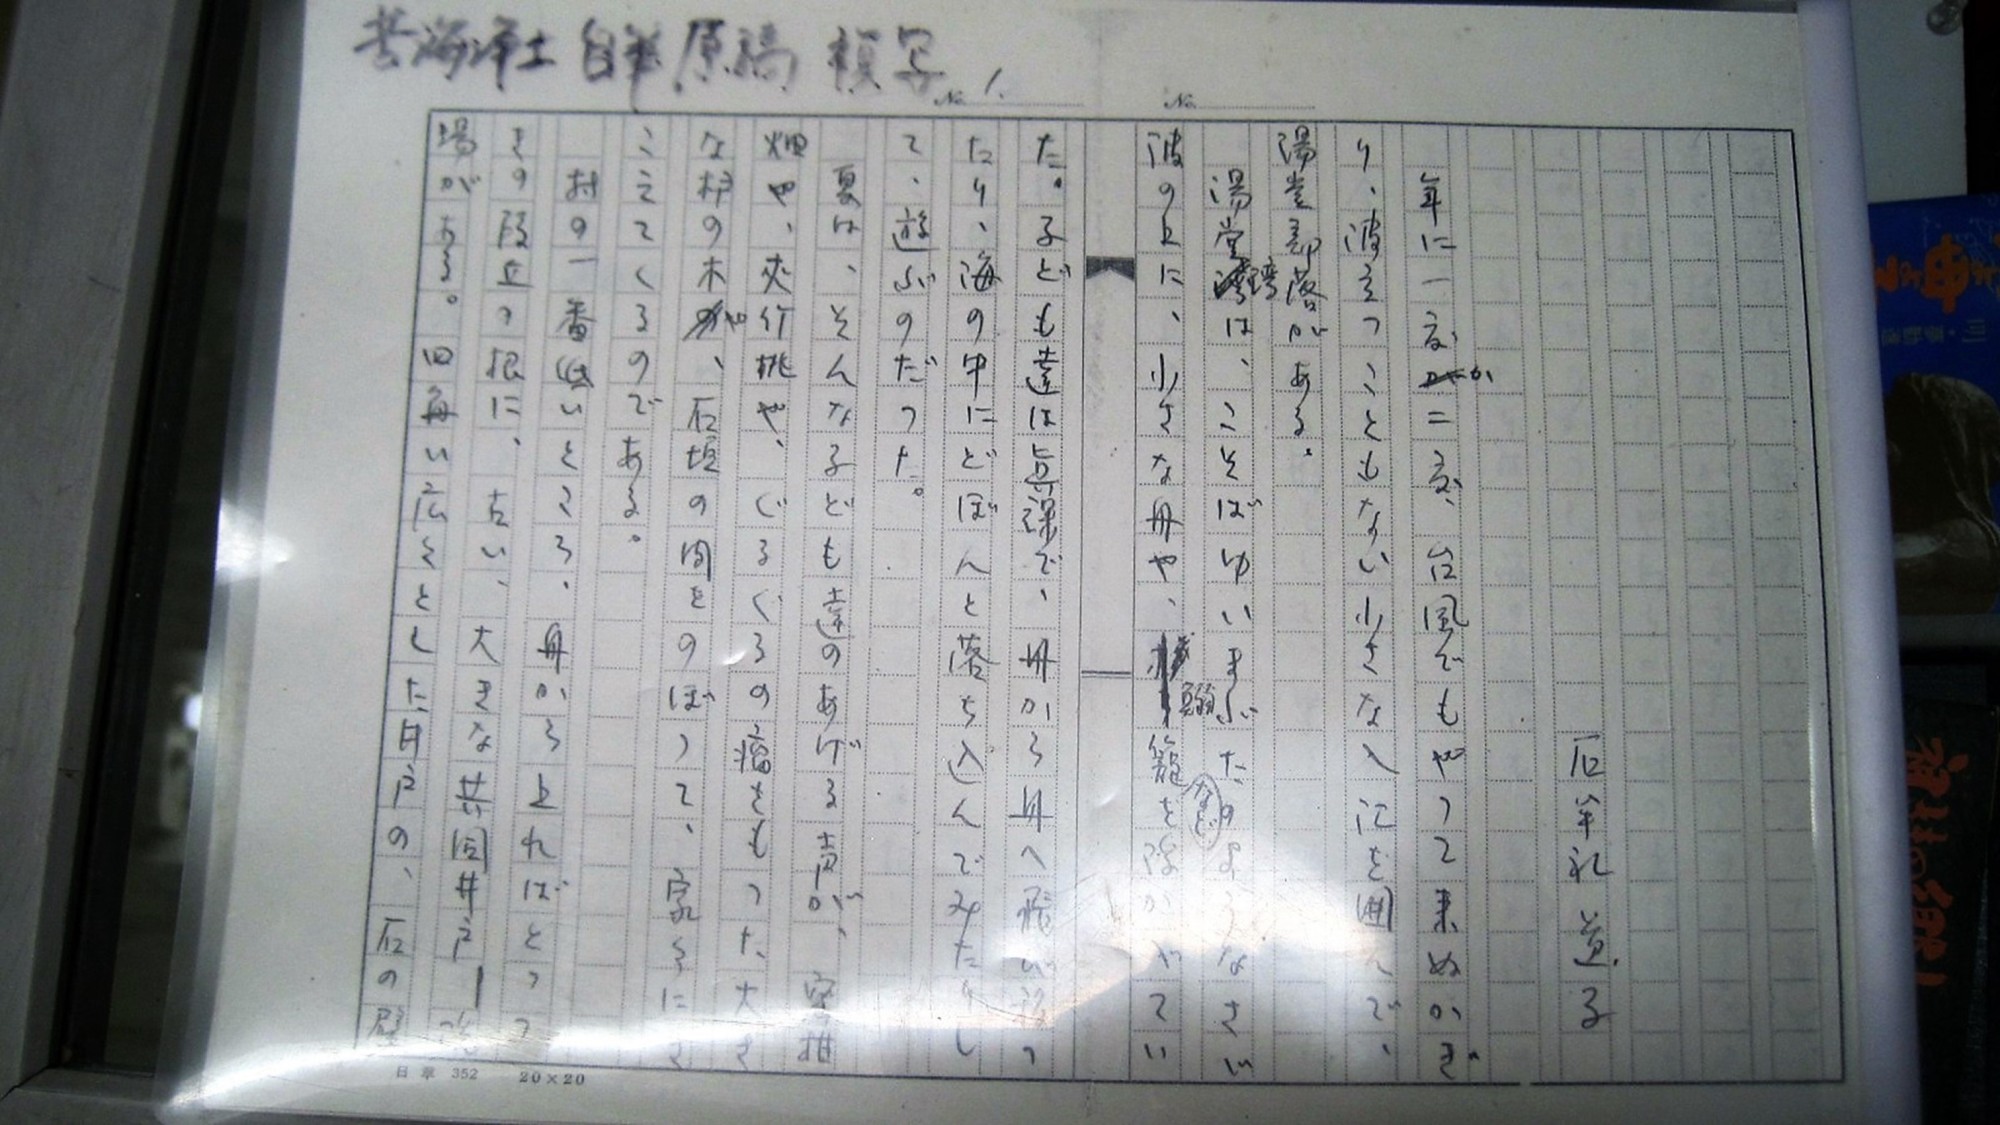 苦海浄土 自筆原稿 模写
No. 1.
No.
石牟礼道子
年に一度か二度、台風でもやって来ぬかぎ
り、波立つこともない小さな入江を囲んで、
湯堂部落がある。
湯堂湾は、こそばゆいまぶたのようなさざ
波の上に、小さな舟や、鰯籠などを浮かべてい
た。子ども達は真裸で、舟から舟へ飛び移っ
たり、海の中にどぼんと落ち込んでみたりし
て、遊ぶのだった。
夏は、そんな子ども達のあげる声が、蜜柑
畑や、夾竹桃や、ぐるぐるの瘤をもった大き
な櫨の木や、石垣の間をのぼって、家々にき
こえてくるのである。
村の一番低いところ、舟から上ればとっつ
きの段丘の根に、古い、大きな共同井戸―洗
場がある。四角い広々とした井戸の、石の壁
日章 352 20×20